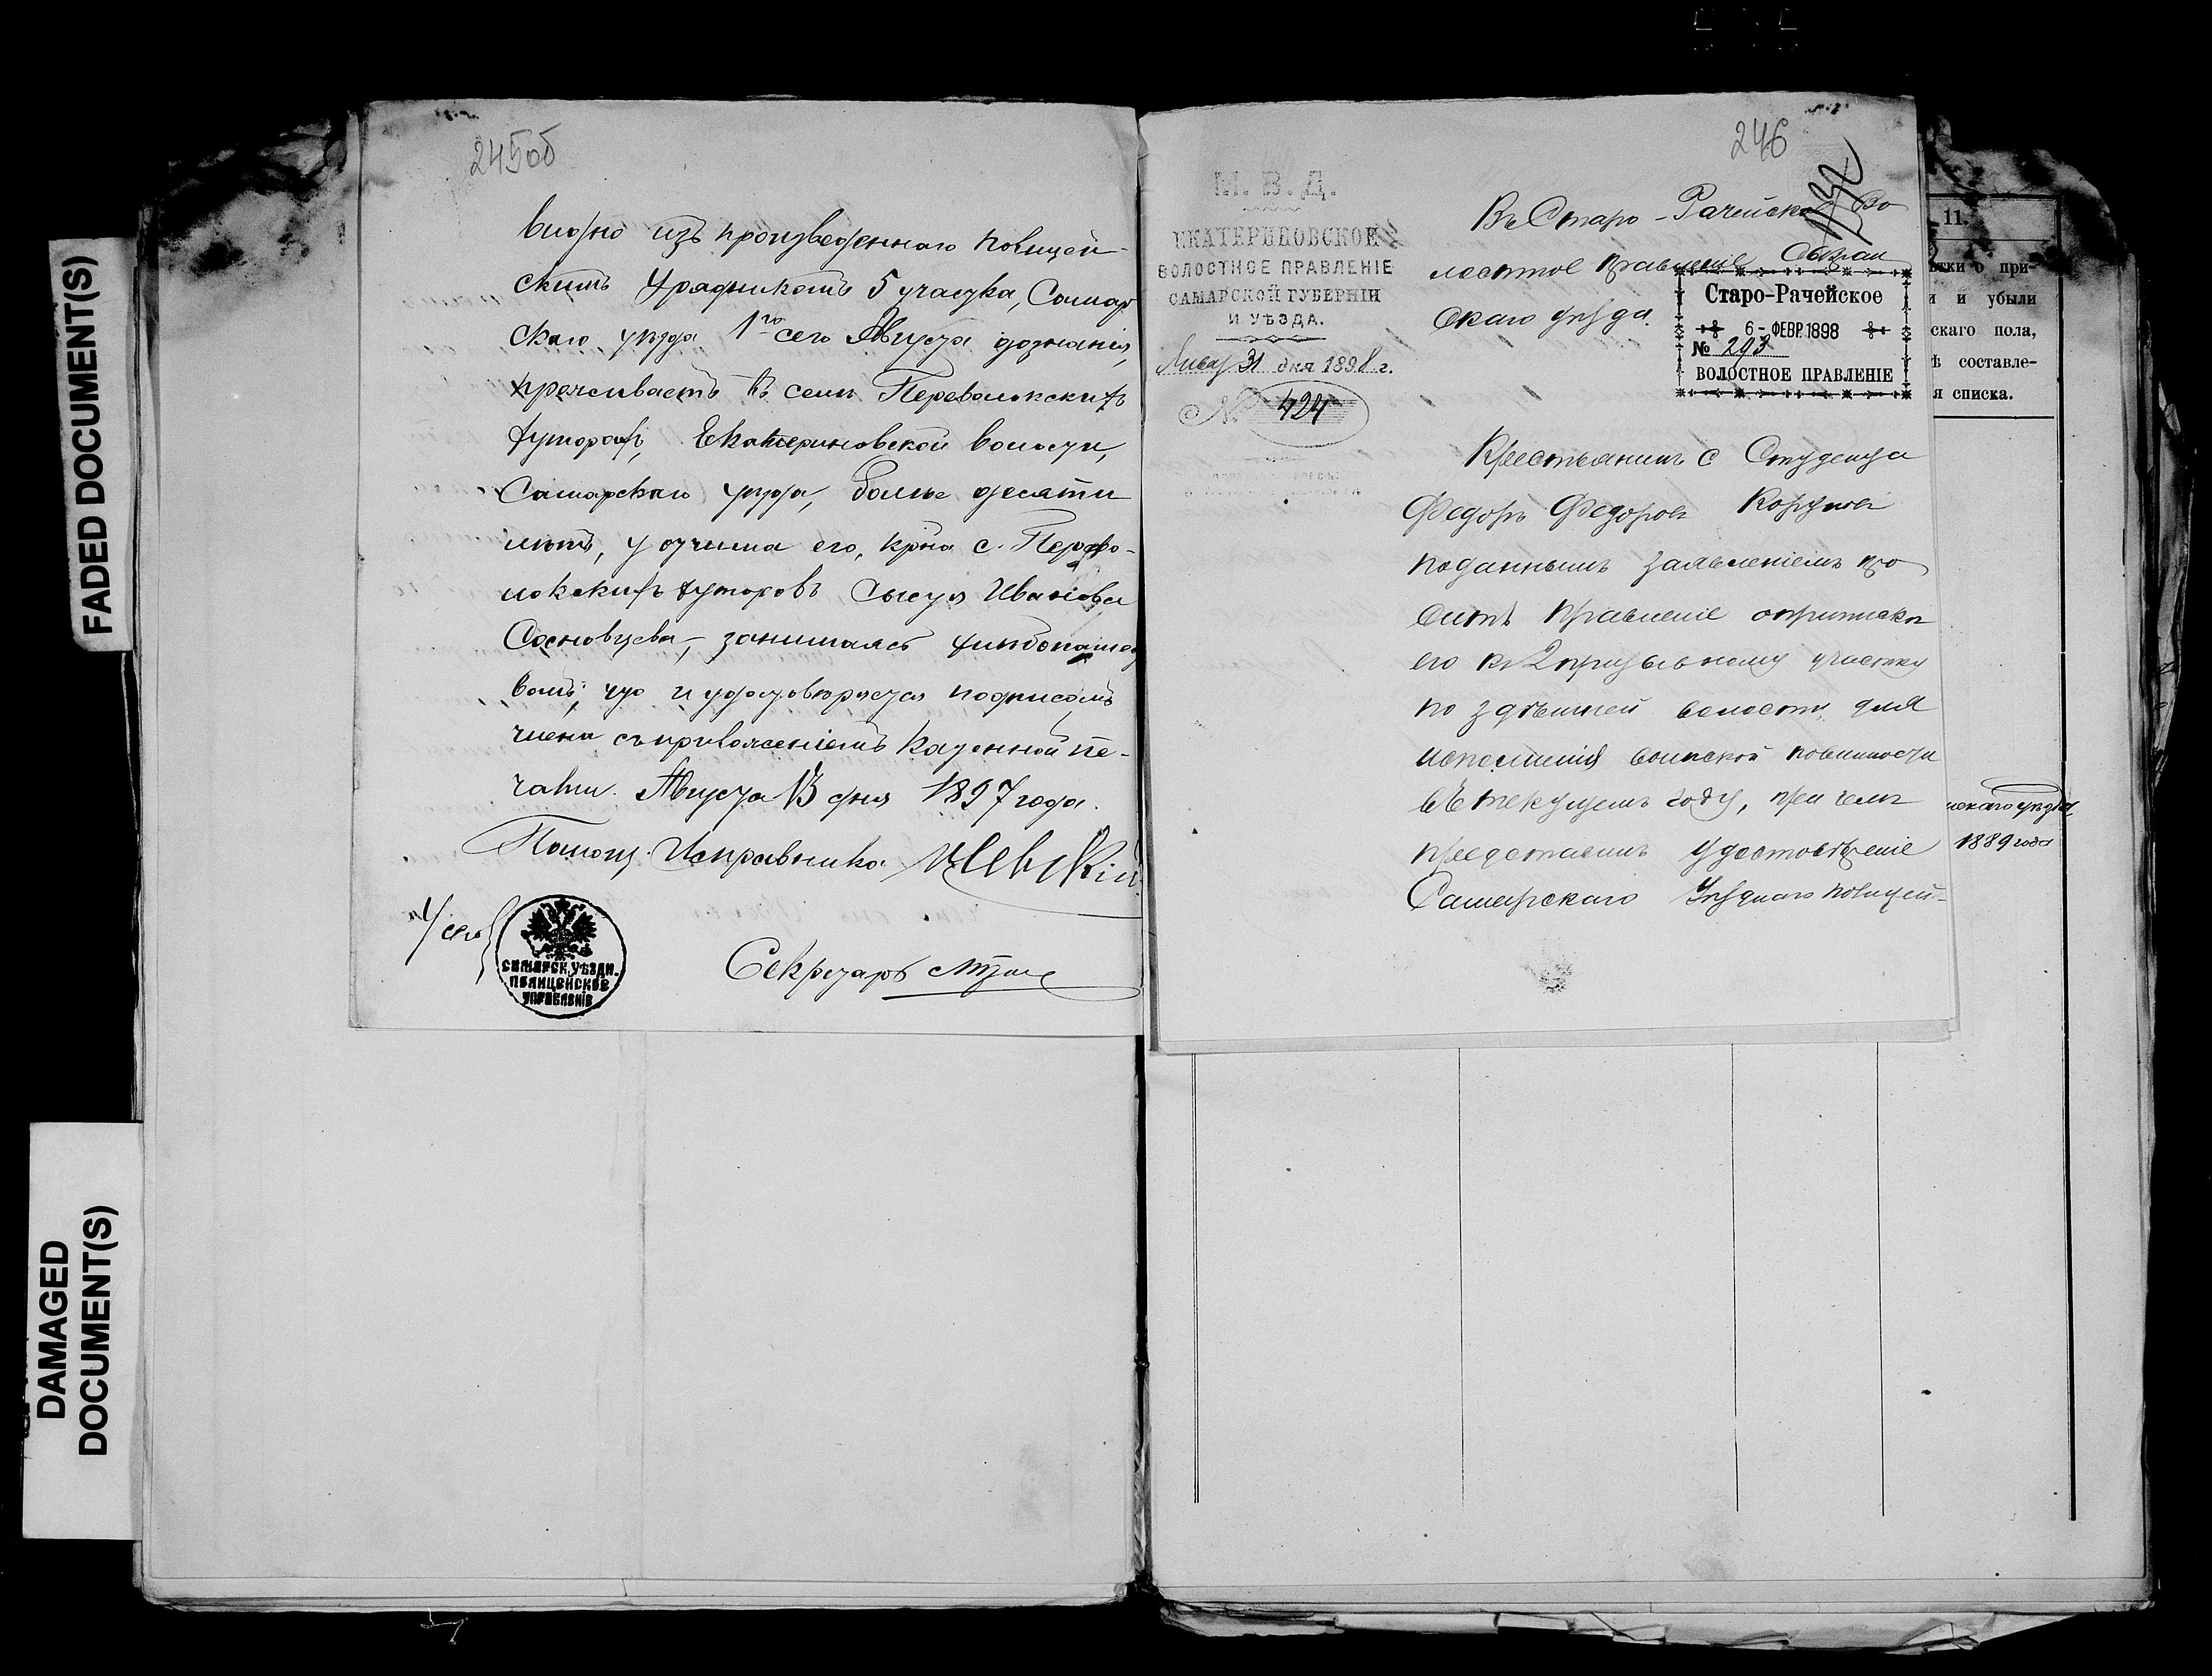 FADED DOCUMENT(S)
DAMAGED
DOCUMENT(S)
245об
видно изъ произведеннаго полицей-
скимъ Урядникомъ 5 участка, Самар
скаго уѣзда 1го сего Августа дознанія,
проживаетъ въ селѣ Переволокскихъ
хуторахъ, Екатериновской волости,
Самарскаго уѣзда, болѣе десяти
лѣтъ, у отчима его, кр-на с. Перево-
локскихъ хуторовъ Сысуя Иванова
Сосновцева, занимаясь хлѣбопашес
вомъ, что и удостовѣряется подписомъ
члена съ приложеніемъ казенной пе-
чати. Августа 13 дня 1897 года.
Помощ. Исправника
САМАРСК. УѢЗДН.
ПОЛИЦЕЙСКОЕ
УПРАВЛЕНІЕ
Секретарь
246
М. В. Д.
ЕКАТЕРИНОВСКОЕ
ВОЛОСТНОЕ ПРАВЛЕНІЕ
САМАРСКОЙ ГУБЕРНІИ
И УѢЗДА.
Январ 31 дня 1898 г.
№ 424
Въ Старо-Рачейское Во
лостное Правленіе Сызран
скаго уѣзда.
Старо-Рачейское
6 - ФЕВР. 1898
№ 293
ВОЛОСТНОЕ ПРАВЛЕНІЕ
Крестьянинъ с Студенца
Федоръ Федоровъ
поданнымъ заявленіемъ про
ситъ Правленіе о припискѣ
его къ 2 призывному участку
по здѣшней волости, для
исполненія воинской повинности
въ текущемъ году, при чемъ
представилъ удостовѣреніе
Самарскаго Уѣзднаго Полицей-
11.
тки о при-
и и убыли
скаго пола,
ѣ составле-
я списка.
скаго уѣзда,
1889 года